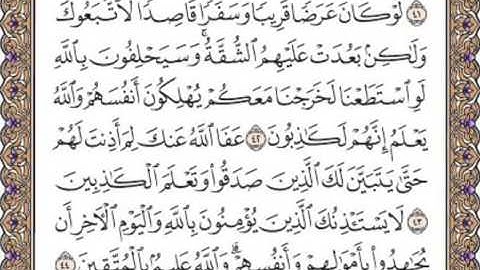 ٤١ لَوْ كَانَ عَرَضًا قَرِيبًا وَسَفَرًا قَاصِدًا لَّاتَّبَعُوكَ
وَلَٰكِنۢ بَعُدَتْ عَلَيْهِمُ الشُّقَّةُ ۚ وَسَيَحْلِفُونَ بِاللَّهِ
لَوِ اسْتَطَعْنَا لَخَرَجْنَا مَعَكُمْ يُهْلِكُونَ أَنفُسَهُمْ وَاللَّهُ
يَعْلَمُ إِنَّهُمْ لَكَاذِبُونَ ٤٢ عَفَا اللَّهُ عَنكَ لِمَ أَذِنتَ لَهُمْ
حَتَّىٰ يَتَبَيَّنَ لَكَ الَّذِينَ صَدَقُوا وَتَعْلَمَ الْكَاذِبِينَ
٤٣ لَا يَسْتَـْٔذِنُكَ الَّذِينَ يُؤْمِنُونَ بِاللَّهِ وَالْيَوْمِ الْآخِرِ أَن
يُجَٰهِدُوا بِأَمْوَٰلِهِمْ وَأَنفُسِهِمْ ۗ وَاللَّهُ عَلِيمٌۢ بِالْمُتَّقِينَ ٤٤